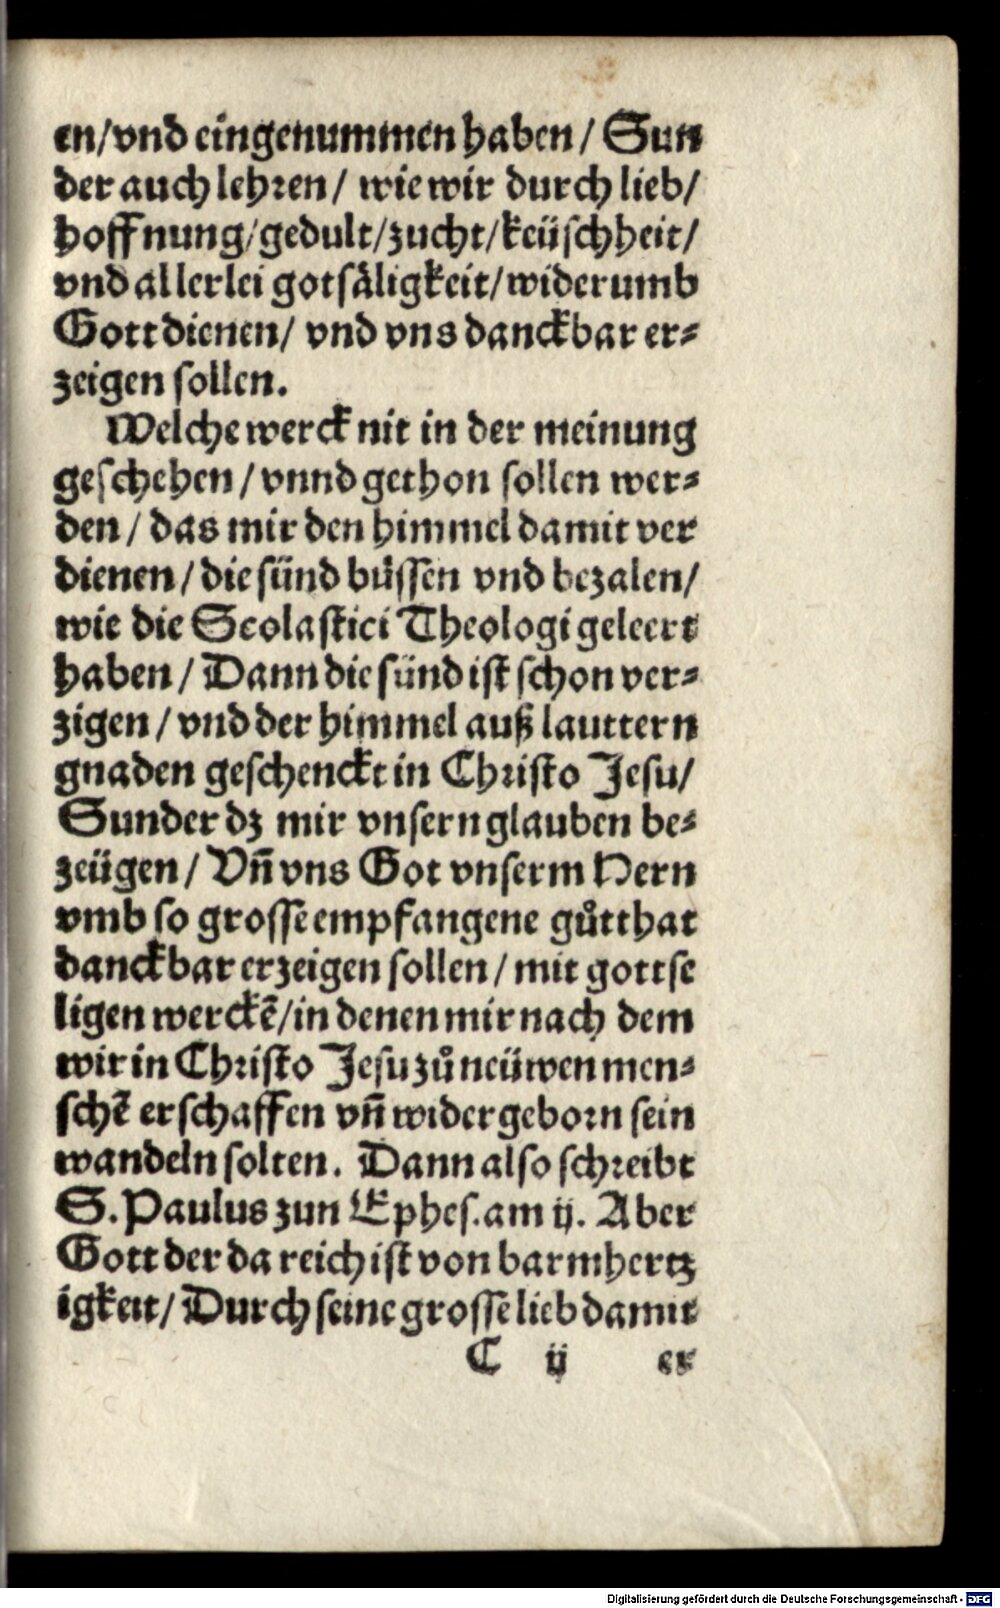 en/vnd eingenummen haben/ Sun
der auch lehren/ wie wir durch lieb/
hoffnung/gedult/zucht/keüschheit/
vnd allerlei gotsäligkeit/widerumb
Gott dienen/ vnd vns danckbar er-
zeigen sollen.
Welche werck nit in der meinung
geschehen/vnnd gethon sollen wer-
den/ das mir den himmel damit ver
dienen/die sünd büssen vnd bezalen/
wie die Scolastici Theologi geleert
haben/ Dann die sünd ist schon ver-
zigen/vnd der himmel auß lauttern
gnaden geschenckt in Christo Jesu/
Sunder dz mir vnsern glauben be-
zeügen/ Vn̄ vns Got vnserm Hern
vmb so grosse empfangene gůtthat
danckbar erzeigen sollen/mit gottse
ligen werckē/in denen mir nach dem
wir in Christo Jesu zů neüwen men-
schē erschaffen vn̄ widergeborn sein
wandeln solten. Dann also schreibt
S. Paulus zun Ephes. am ij. Aber
Gott der da reich ist von barmhertz
igkeit/ Durch seine grosse lieb damit
C ij er
Digitalisierung gefördert durch die Deutsche Forschungsgemeinschaft - DFG